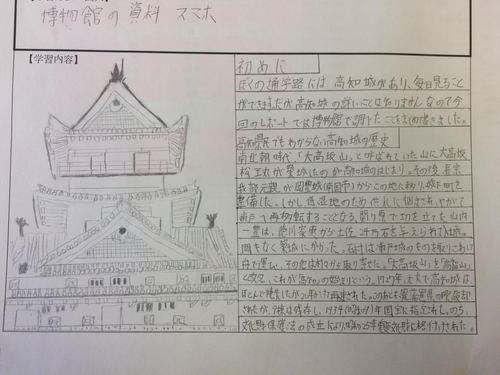 博物館の資料 スマホ
【学習内容】
初めに
ぼくの通学路には高知城があり、毎日見ること
ができますが高知城の詳しいことは知りません。なので今
回のレポートでは博物館で調べたことをまとめ書きました。
高知県民でもわからない高知城の歴史
南北朝時代、「大高坂山」と呼ばれていた山に大高坂
松王丸が築城したのが高知城のはじまり。その後、長宗
我部元親が岡豊城(南国市)からこの地に移り城下町を
整備した。しかし低湿地のため水はけに悩まされ、やがて
浦戸へ再移転することとなる。関ヶ原で功を立てた山内
一豊は、徳川家康から土佐
間もなく築城にかかった。石計は浦戸城のものを取りこわし
舟で運び、その他は村々から取り寄せた。「大高坂山」を「河中山」
と改名、これが高知の始まりという。1727年、大火で高知城は
ほとんど焼失したが20年かけて再建された。このあとも廃藩置県の
されたが、は残存し、1934(昭和9)年国宝に指定された。のち、
文化財保護法の成立により昭和25年重要文化財に格付けされた。